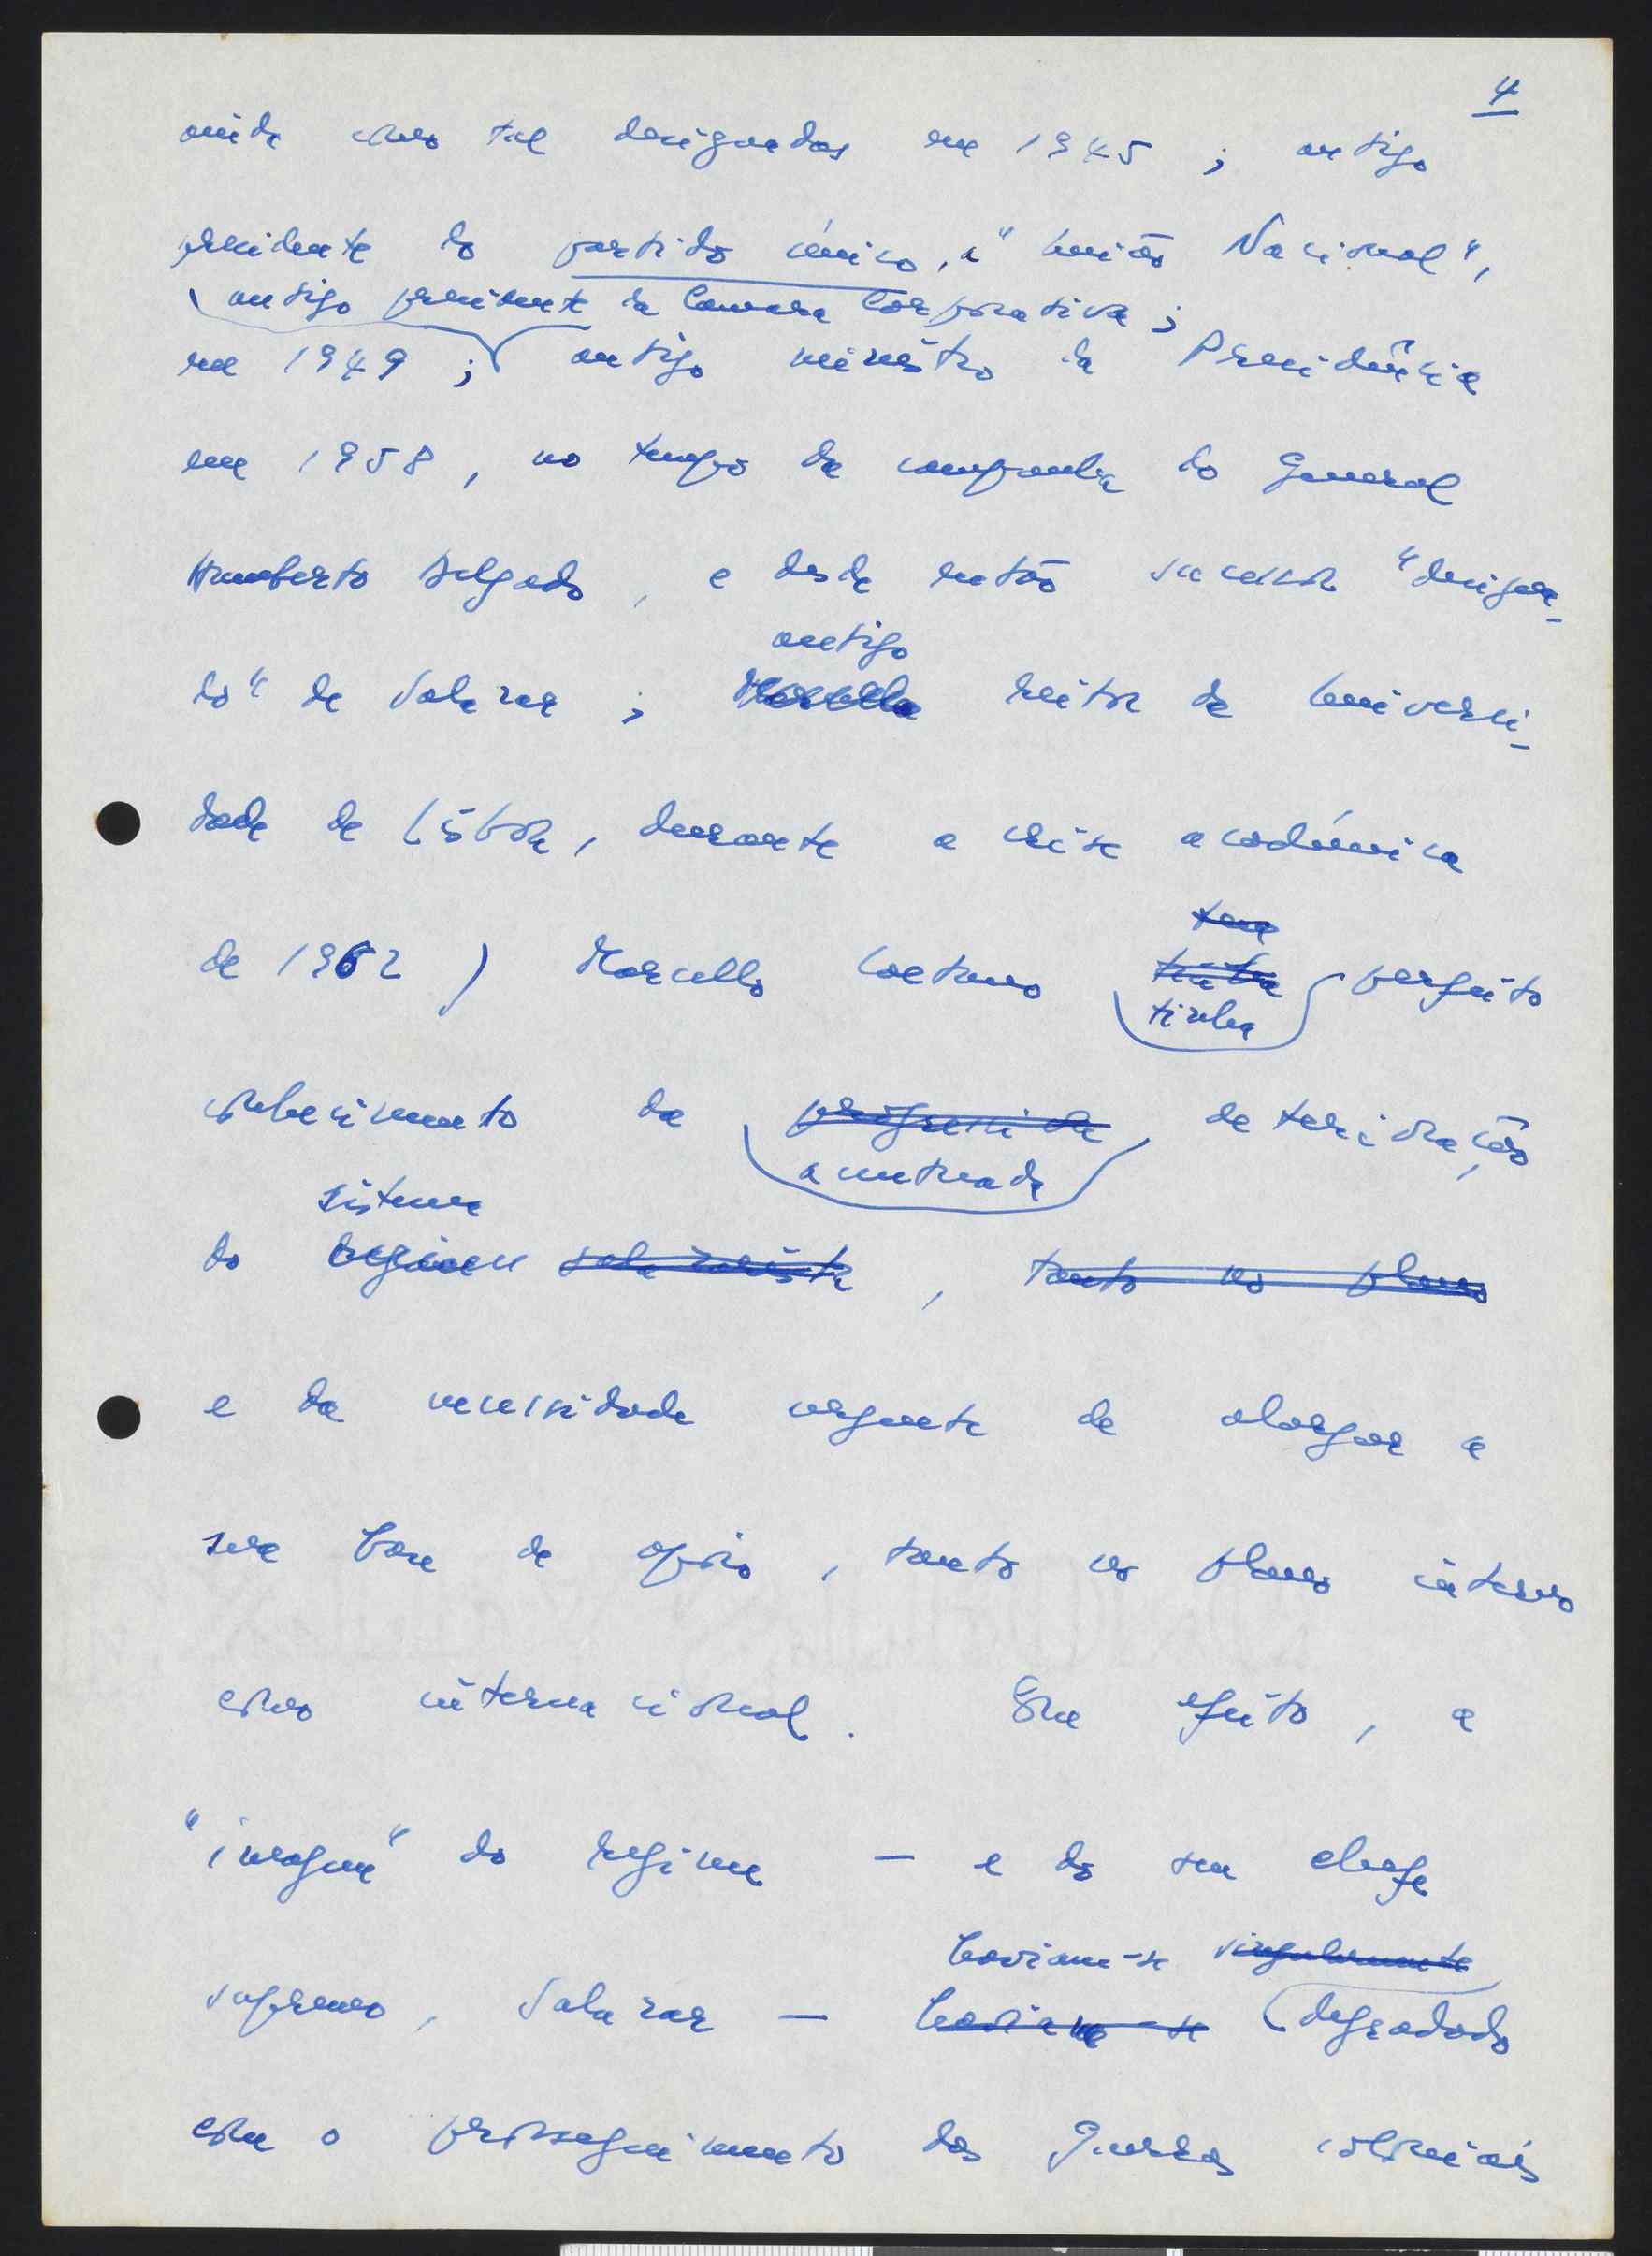 4
ainda como tal designadas em 1945 ; antigo
presidente do partido único, a "União Nacional",
antigo presidente da Camara Corporativa ;
em 1949 ; antigo ministro da Presidência
em 1958 , no tempo da campanha do General
Humberto Delgado , e desde então sucessor "designa-
antigo
do" de Salazar ; Marcello reitor da Universi-
dade de Lisboa, durante a crise académica
tem
de 1962 ) Marcello Caetano tinha perfeito
tinha
conhecimento da progressiva deterioração
acentuada
sistema
do regimen salazarista , tanto no plano
e da necessidade urgente de alargar a
sua base de apoio , tanto no plano interno
como internacional . Com efeito , a
"imagem" do regime — e do seu chefe
haviam-se singularmente
supremo , Salazar — haviam-se degradado
com o prosseguimento das guerras coloniais